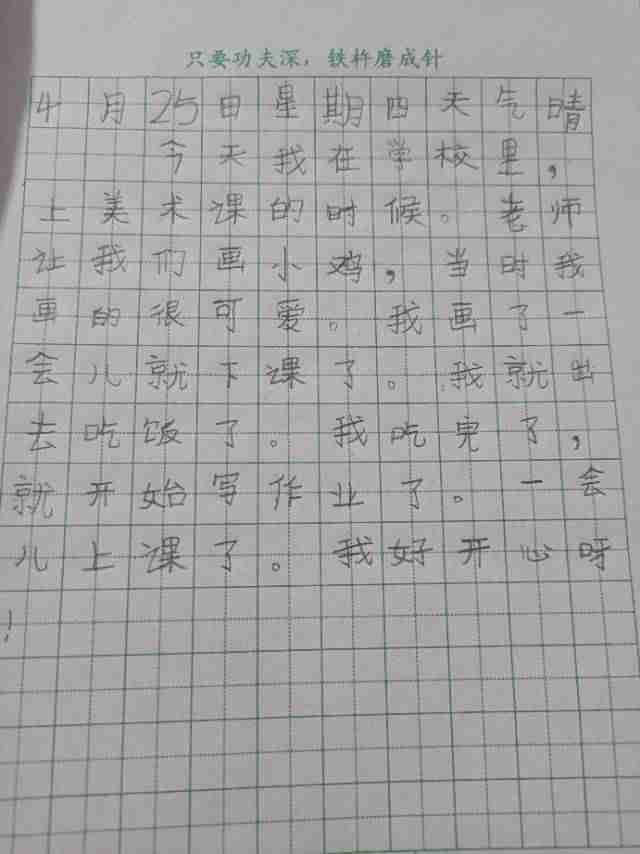 只要功夫深，铁杵磨成针
4月25日星期四天气晴
今天我在学校里，
上美术课的时候。老师
让我们画小鸡，当时我
画的很可爱。我画了一
会儿就下课了。我就出
去吃饭了。我吃完了，
就开始写作业了。一会
儿上课了。我好开心呀
！